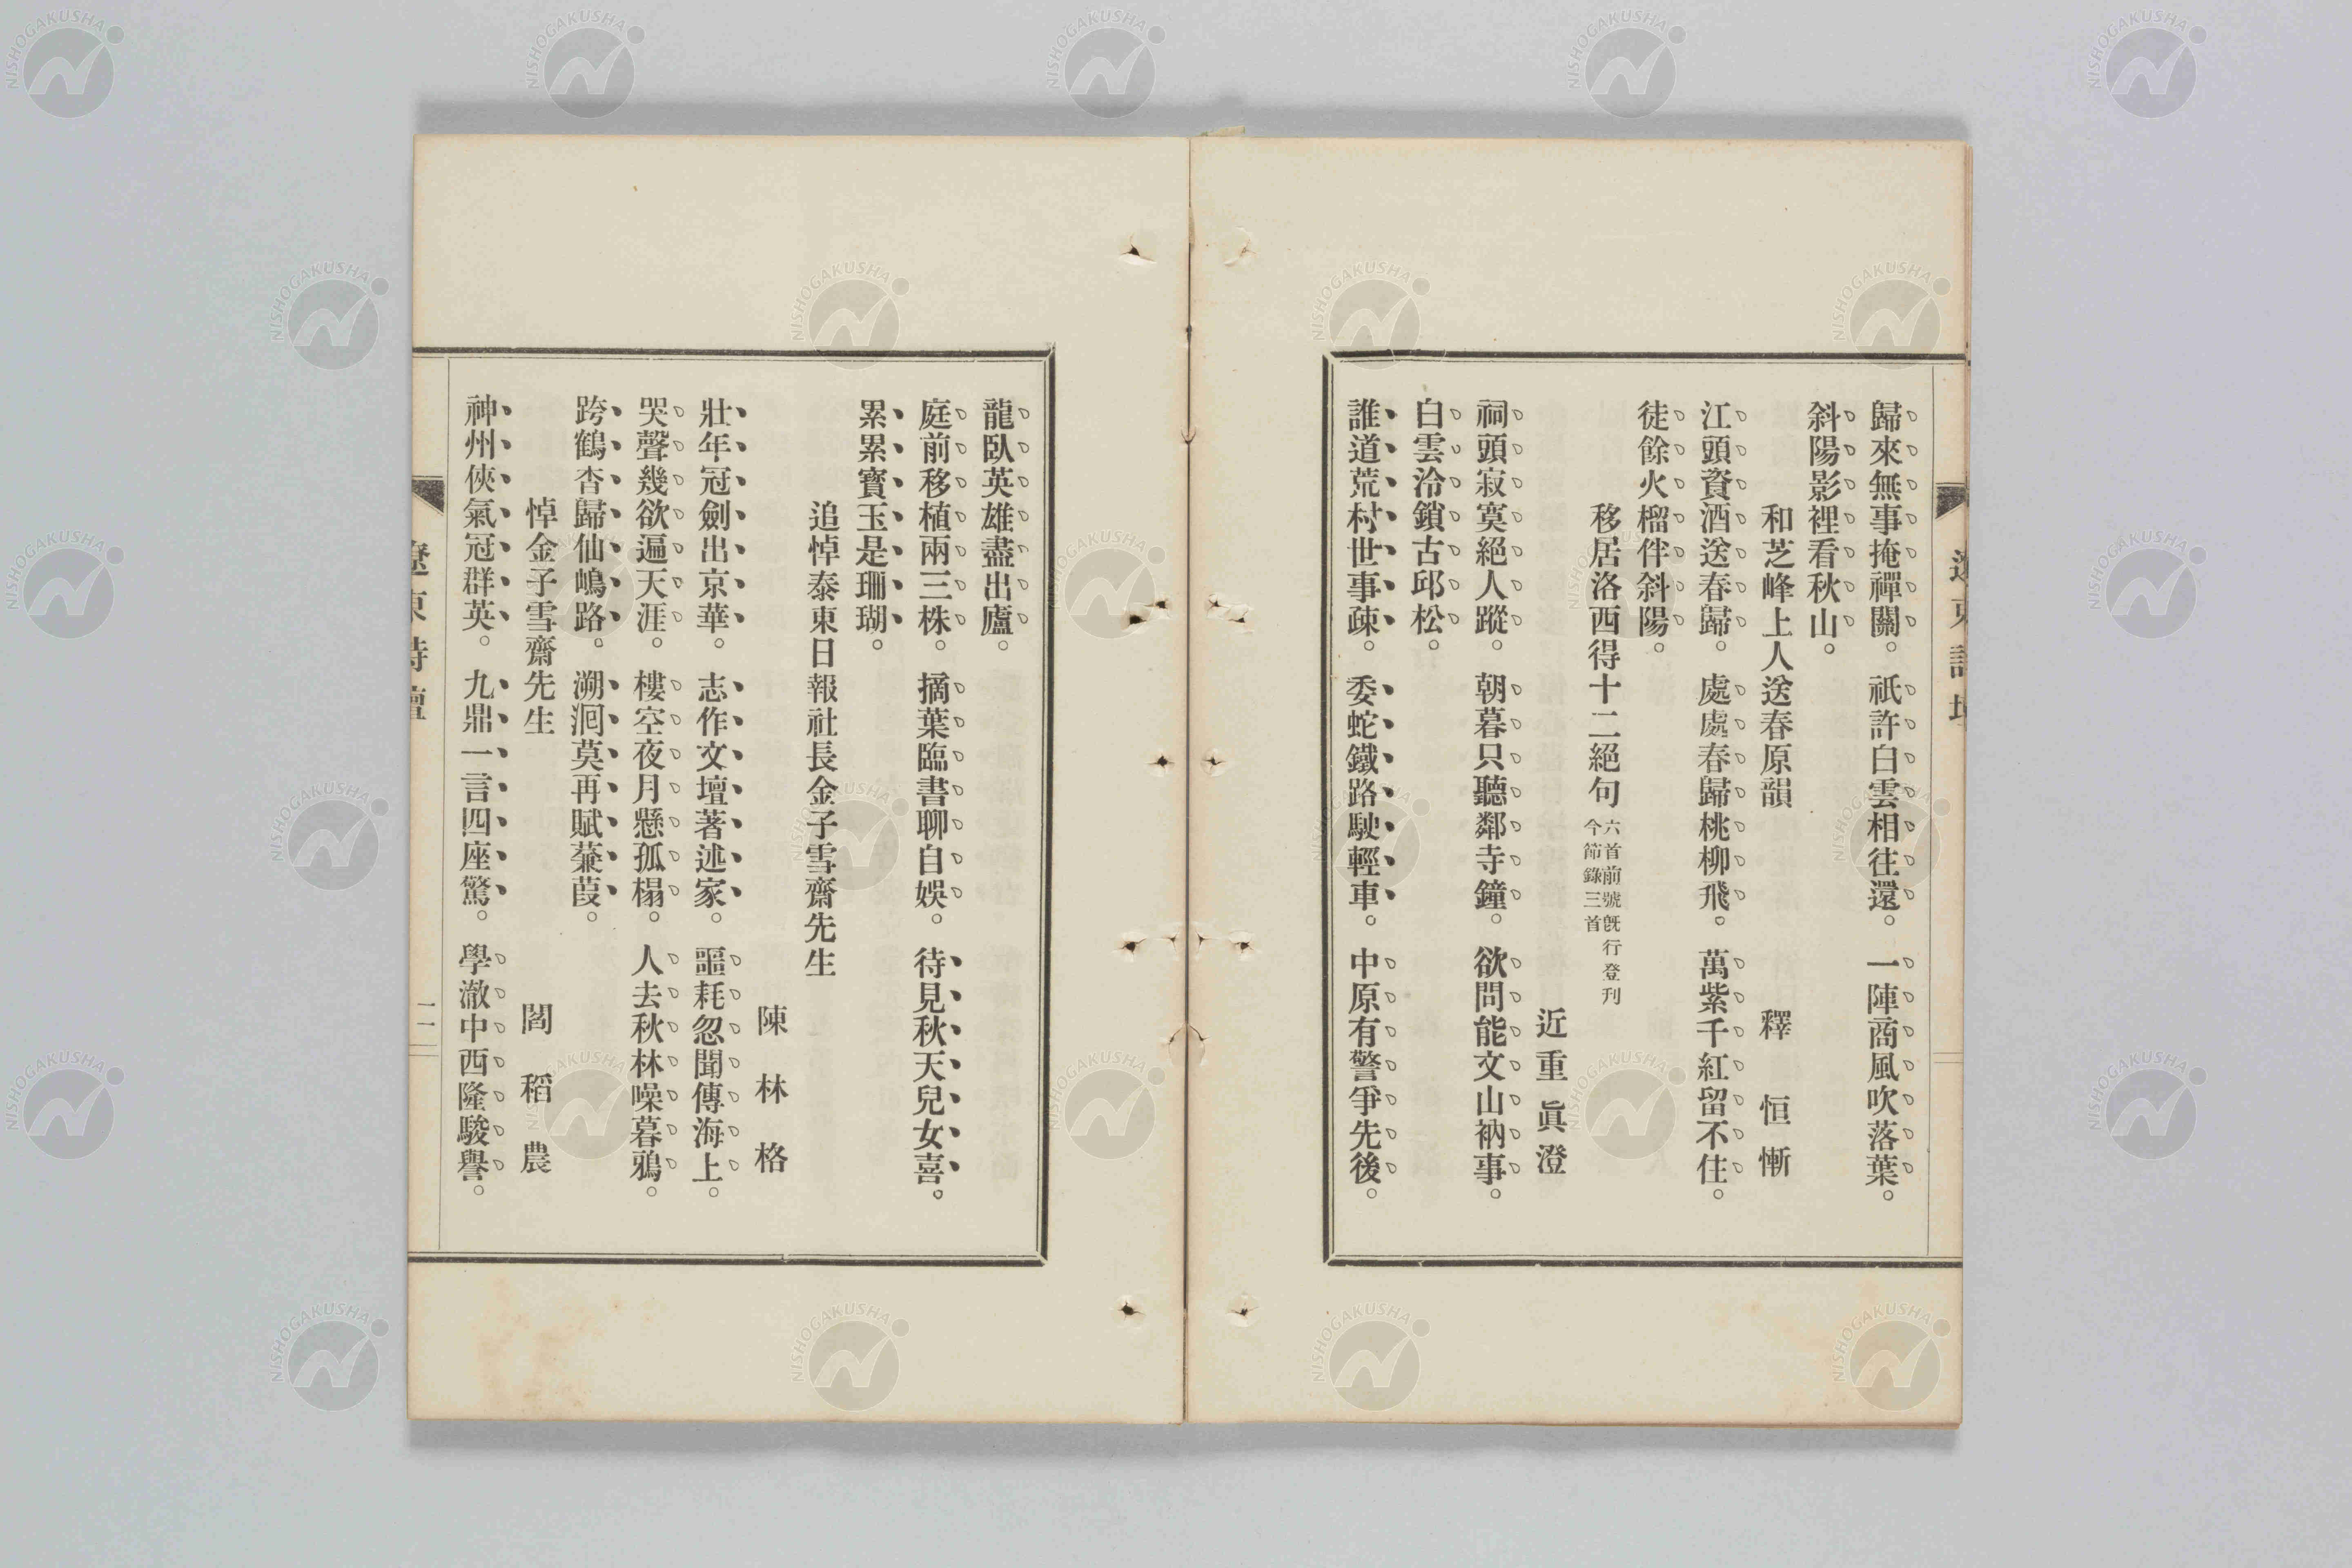 歸來無事掩禪關。祇許白雲相往還。一陣商風吹落葉。
斜陽影裡看秋山。
和芝峰上人送春原韻　釋恒慚
江頭資酒送春歸。處處春歸桃柳飛。萬紫千紅留不住。
徒餘火榴伴斜陽。
移居洛西得十二絕句
六首前號既行登刊
今節錄三首
近重眞澄
祠頭寂寞絕人蹤。朝暮只聽鄰寺鐘。欲問能文山衲事。
白雲泠鎖古邱松。
誰道荒村世事疎。委蛇鐵路駛輕車。中原有警爭先後。
龍臥英雄盡出廬。
庭前移植兩三株。摘葉臨書聊自娛。待見秋天兒女喜。
累累寶玉是珊瑚。
追悼泰東日報社長金子雪齋先生
陳林格
壯年冠劍出京華。志作文壇著述家。噩耗忽聞傳海上。
哭聲幾欲遍天涯。樓空夜月懸孤榻。人去秋林噪暮鴉。
跨鶴杳歸仙嶋路。溯洄莫再賦蒹葭。
悼金子雪齋先生　閻稻農
神州俠氣冠群英。九鼎一言四座驚。學澈中西隆駿譽。
遼東詩壇
二一
NISHOGAKUSHA